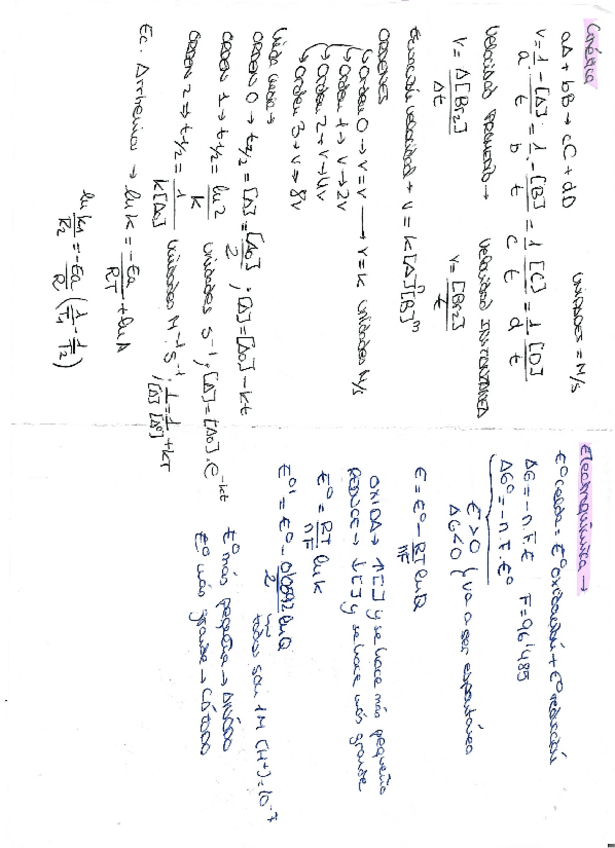 Cinética
aA + bB → cC + dD    UNIDADES = M/s
v = 1/a · -[A]/t = 1/b · -[B]/t = 1/c [C]/t = 1/d [D]/t
Velocidad PROMEDIO →    Velocidad INSTANTÁNEA
V = Δ[Br2]/Δt    V = [Br2]/t
Ecuación velocidad → v = k[A]^n[B]^m
ORDENES
→ orden 0 → v = v → v = k unidades M/s
→ orden 1 → v → 2v
→ orden 2 → v → 4v
→ orden 3 → v → 8v
Vida media →
ORDEN 0 → t1/2 = [A] = [A0]/2 ; [A] = [A0] - kt
ORDEN 1 → t1/2 = ln2/k    unidades s^-1 ; [A] = [A0] · e^-kt
ORDEN 2 → t1/2 = 1/k[A0]    unidades M^-1 · s^-1 ; 1/[A] = 1/[A0] + kt
Ec. Arrhenius → ln k = -Ea/RT + ln A
ln k1/k2 = -Ea/R (1/T1 - 1/T2)
Electroquímica →
E° celda = E° oxidación + E° reducción
ΔG = -n.F.E    F = 96'485
ΔG° = -n.F.E°
E > 0
ΔG < 0 } va a ser espontánea
E = E° - RT/nF ln Q
OXIDA → ↑[ ] y se hace más pequeño
REDUCE → ↓[ ] y se hace más grande
E° = RT/nF ln k
E°' = E° - 0'0592/2 ln Q
→ todos son 1M [H+] = 10^-7
E° más pequeño → ÁNODO
E° más grande → CÁTODO